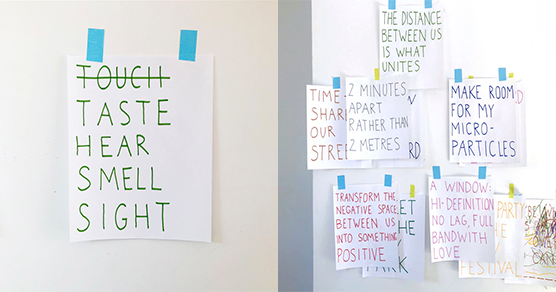 TOUCH
TASTE
HEAR
SMELL
SIGHT
THE DISTANCE
BETWEEN US
IS WHAT
UNITES
TIME
SHARE
OUR
2 MINUTES
APART
RATHER THAN
2 METRES
RD
MAKE ROOM
FOR MY
MICRO-
PARTICLES
D
TRANSFORM THE
NEGATIVE SPACE
BETWEEN US
INTO SOMETHING
POSITIVE
ET
HE
PARK
A WINDOW:
HI-DEFINITION
NO LAG, FULL
BANDWITH
LOVE
PARTY
FESTIVAL